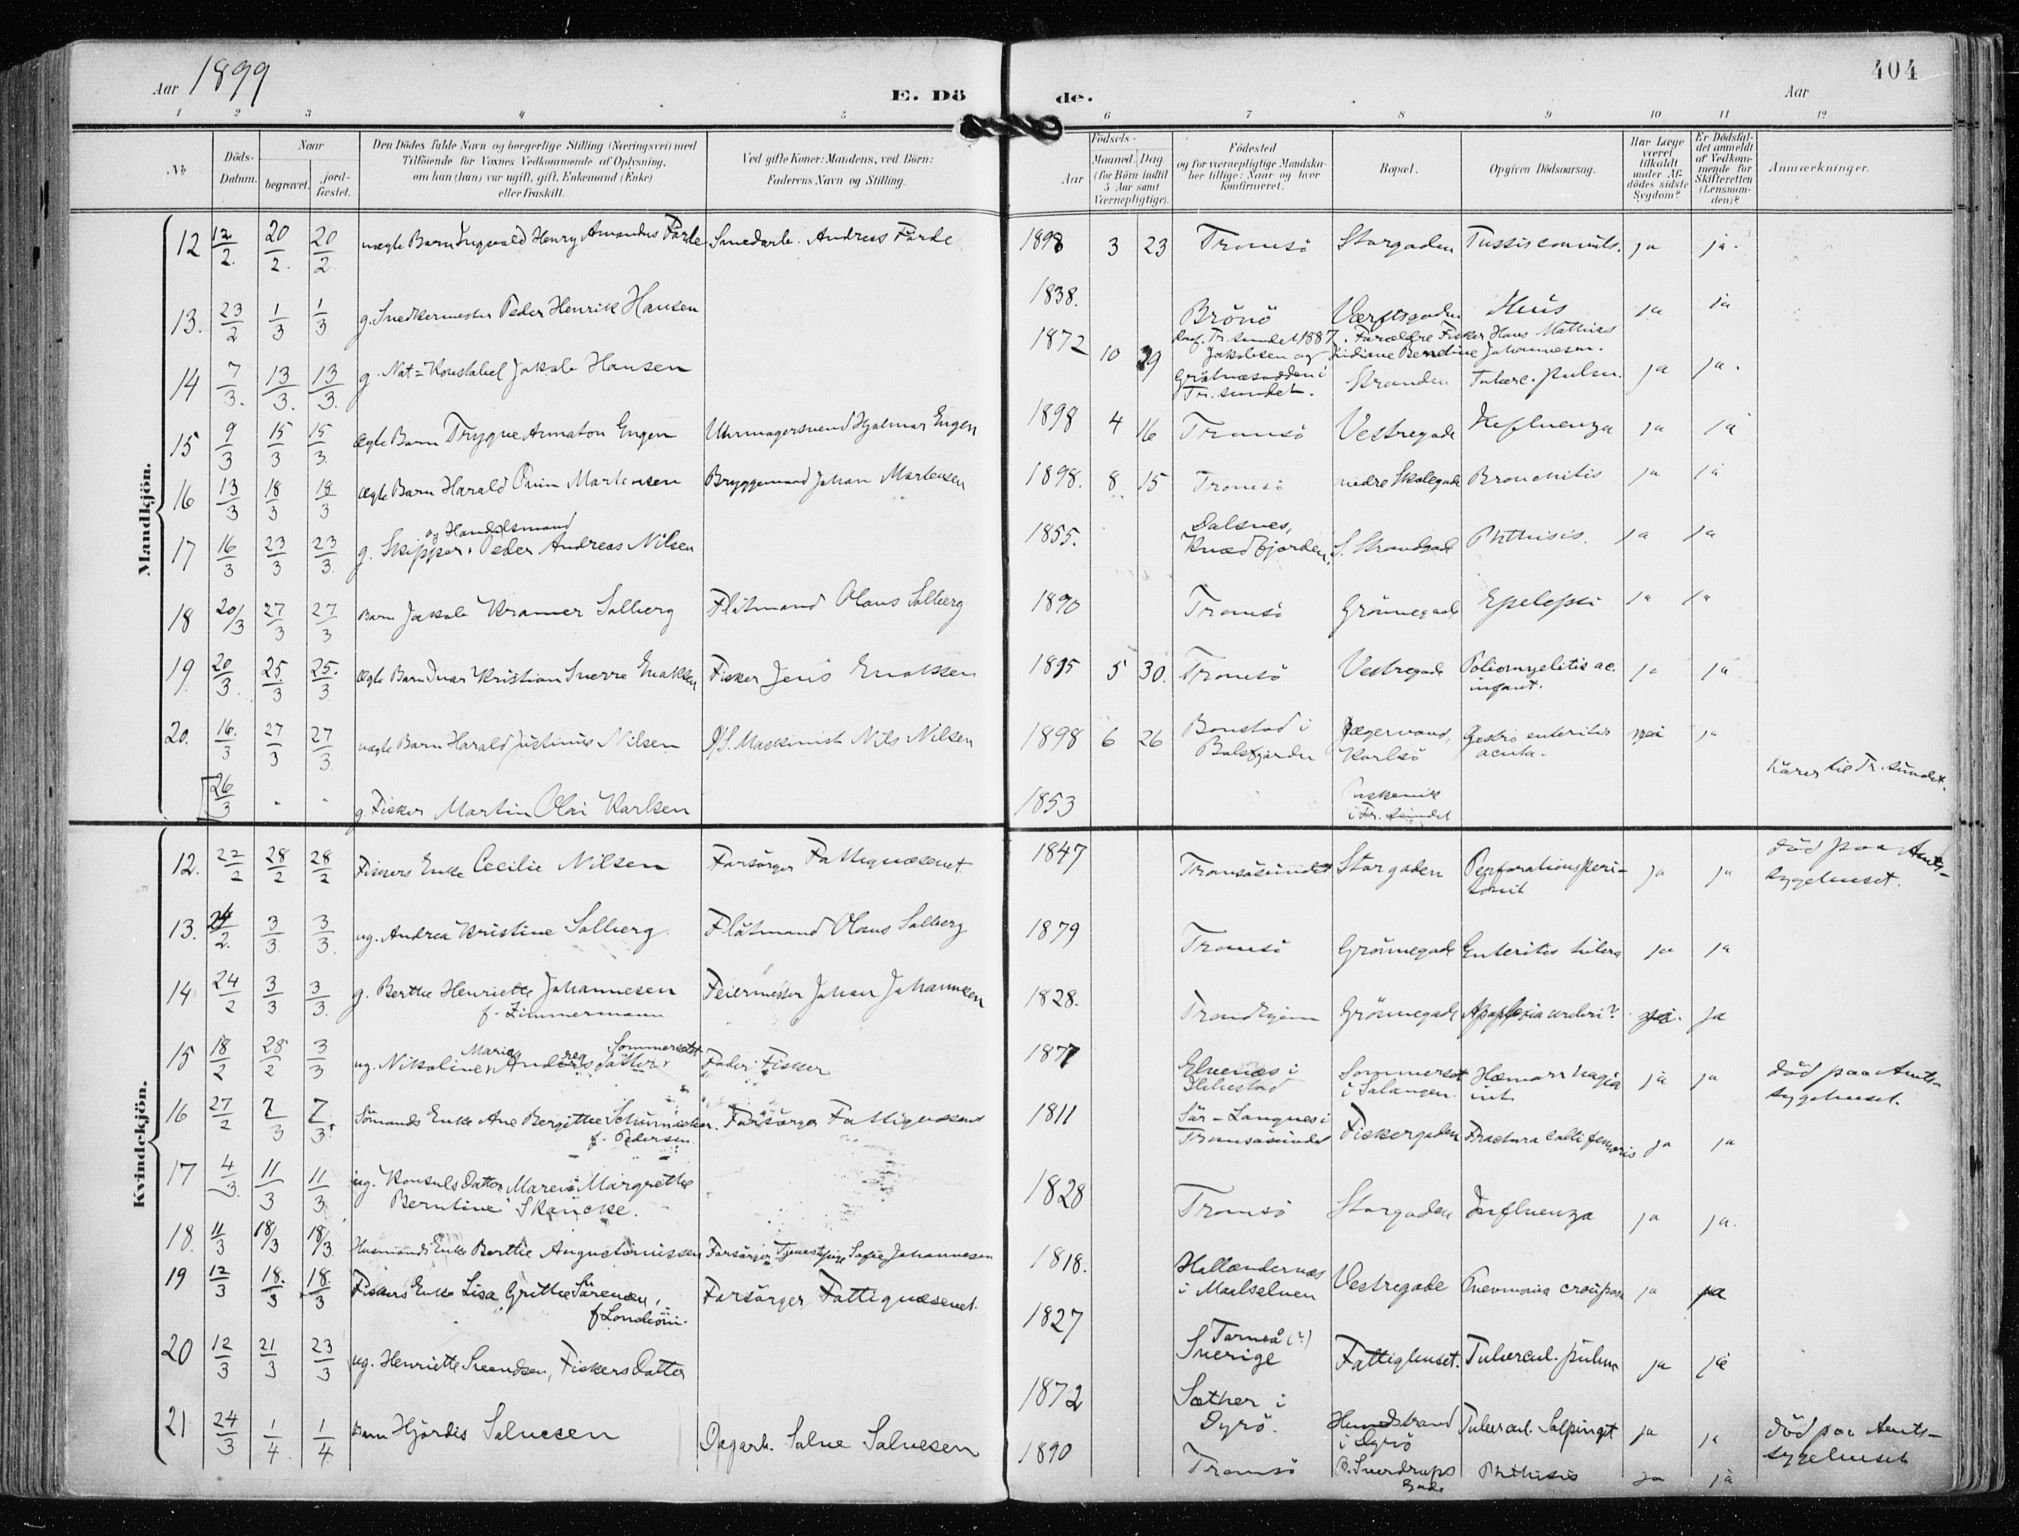 Aar 1899
E. Döde.
404
Aar
1 2 3 4 5 6 7 8 9 10 11 12
No
Döds-Datum.
Naar
begravet.
jord-fæstet.
Den Dödes fulde Navn og borgerlige Stilling (Næringsvei) med
Tilföiende for Voxnes Vedkommende af Oplysning,
om han (hun) var ugift, gift, Enkemand (Enke)
eller fraskilt.
Ved gifte Koner: Mandens, ved Börn:
Faderens Navn og Stilling.
Födsels-
Aar
Maaned. Dag.
(for Börn indtil
5 Aar samt
Værnepligtige).
Födested
og for værnepligtige Mandska-
ber tillige: Naar og hvor
konfirmeret.
Bopæl.
Opgiven Dödsaarsag.
Har Læge
været
tilkaldt
under Af-
dödes sidste
Sygdom?
Er Dödsfal-
det anmeldt
af Vedkom-
mende for
Skifteretten
(Lensman-
den)?
Anmærkninger.
Mandkjön.
12 12/2. 20/2. 20/2. uægte Barn Ingvald Henry Amandus Förde Smedarb. Andreas Förde 1898 3 23 Tromsö Storgaden Tussis convuls. ja ja.
13. 23/2 1/3 1/3 g. Snedkermester Peder Henrik Hansen 1838. Brönö Værftsgaden Ileus ja ja
Konf. Tr.sundet 1887. Forældre Fisker Hans Mathias
Jakobsen og Lidiane Berntine Johannesen.
14 7/3. 13/3. 13/3. g. Nat-Konstabel Jakob Hansen 1872 10 29 Grötnæsodden i Tr.sundet. Stranden Tuberc. pulm. ja ja.
15 9/3 15/3 15/3. ægte Barn Trygve Armaton Engen Uhrmagersvend Hjalmar Engen 1898 4 16 Tromsö Vestregade Influenza ja ja
16 13/3 18/3 18/3 ægte Barn Harald Martensen Bryggemand Johan Martensen 1898. 8 15 Tromsö nedre Skolegade Bronchitis ja ja
17 16/3 23/3 23/3. g. Skipper og Handelsmand Peder Andreas Nilsen 1855. Dalsnes, Kvædfjorden, S. Strandgade Phthisis. ja ja
18 20/3 27/3 27/3 Barn Jakob Kramer Solberg Flötmand Olaus Solberg 1890 Tromsö Grönnegade Epelepsi ja ja
19. 20/3. 25./3 25./3. ægte Barn Ivar Kristian Sverre Enoksen Fisker Jens Enokssen 1895 5 30. Tromsö Vestregade Poliomyelitis ac. infant. ja ja
20. 16./3 27/3 27/3. uægte Barn Harald Justinus Nilsen D/S. Maskinist Nils Nilsen 1898 6 26 Bonstad i Balsfjorden Jægervand, Karlsö Gastro enteritis acuta. nei ja
26/3 - - g. Fisker Martin Olai Karlsen 1853 i Tr. sundet hører til Tr. sundet.
Kvindekjön.
12. 22/2 28/2 28/2 Fiskers Enke Cecilie Nilsen Forsörges Fattigvæsenet 1847 Tromsösundet Storgaden Perforationsperitonit ja ja död paa Amtssygehuset.
13. 24/2. 3/3 3/3. ug. Andrea Kristine Solberg. Flötmand Olaus Solberg 1879 Tromsö Grönnegade Enteritis tuberc ja ja
14 24/2 3/3 3/3. g. Berthe Henriette Johannesen f. Zimmermann Feiermester Johan Johannesen 1828. Trondhjem Grönnegade Apoplexia cerebri? ja. ja
15 18/2 28/2 3/3 ug. Nikoline Marie Sommerset Fader: Fisker 1877 Elvenæs i Ibbestad Sommerset i Salangen. Hæmorrhagia int. ja ja död paa Amtssygehuset.
16 27/2 7/3 7/3. Sömands Enke Ane Bergitte Schumacher. f. Pedersen Forsörges Fattigvæsenet 1811 Sör-Langnes i Tromsösundet Fiskergaden Fractura colli femoris ja ja
17 4/3. 11/3 11/3 ug. Konsuls Datter Maren Margrethe Berntine Skancke. 1828 Tromsö Storgaden Influenza ja ja.
18. 11/3 18/3 18/3. Husmands Enke Berthe Augustinussen Forsörges Tjenestepige Sofie Johannesen 1818. Hollændernæs i Maalselven Vestregade Pneumonia crouposa ja ja
19 12/3 18./3 18./3 Fiskers Enke Lisa Grithe Sörensen, Forsörges Fattigvæsenet. 1827 Tornså (?) Sverige Fattighuset. Tubercul. pulm ja ja
20 12/3 21/3 23/3 ug. Henriette Svendsen, Fiskers Datter 1872 Sæther i Dyrö. Hundstrand i Dyrö Tubercul. Salpingit ja ja död paa Amtssygehuset
21 24/3 1/4 1/4 Barn Hjördis Salvesen Dagarb. Salve Salvesen 1890 Tromsö B. Sverdrups Gade Phthisis ja ja